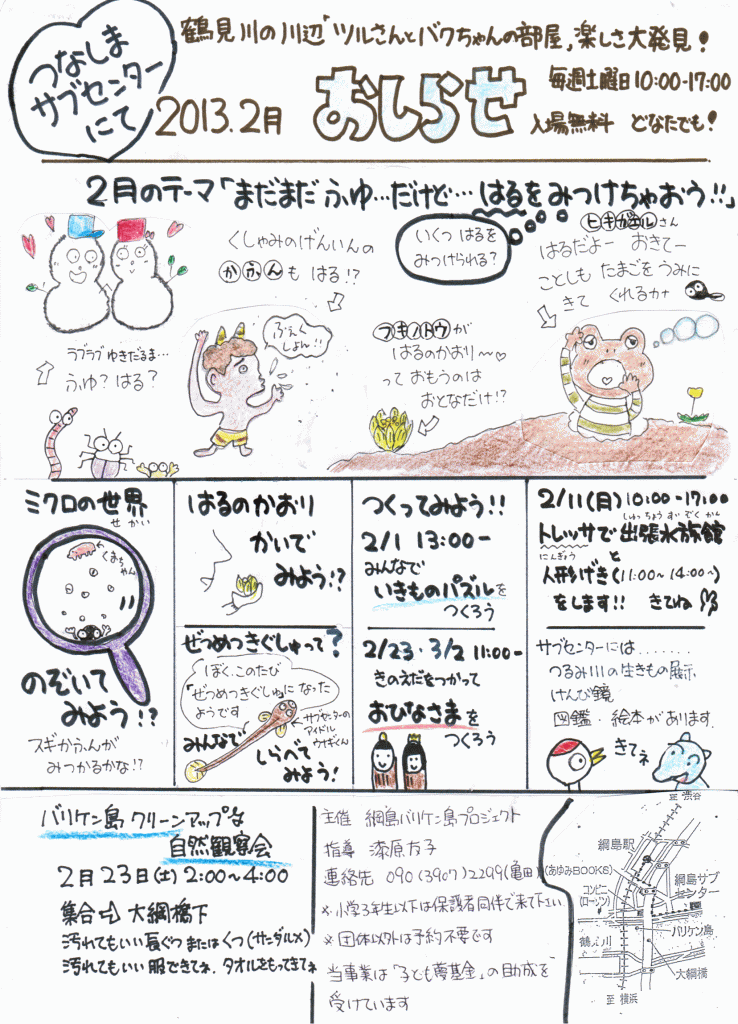 つなしま
サブセンター
にて
鶴見川の川辺「ツルさんとバクちゃんの部屋」楽しさ大発見!
2013.2月
おしらせ
毎週土曜日10:00-17:00
入場無料 どなたでも!
2月のテーマ「まだまだ ふゆ…だけど… はるを みつけちゃおう!!」
ラブラブ ゆきだるま…
ふゆ? はる?
くしゃみのげんいんの
かふんも はる!?
ふぇく
しょん!!
いくつ はるを
みつけられる?
フキノトウが
はるのかおり〜♡
って おもうのは
おとなだけ!?
ヒキガエルさん
はるだよー おきてー
ことしも たまごを うみに
きて くれるカナ
ミクロの世界
せかい
くまちゃん
のぞいて
みよう!?
スギかふんが
みつかるかな!?
はるのかおり
かいで
みよう!?
ぜつめつきぐしゅって?
ぼく、このたび
「ぜつめつきぐしゅ」になった
ようです
サブセンターの
アイドル
ウナギくん
みんなで
しらべて
みよう!
つくってみよう!!
2/1 13:00-
みんなで
いきものパズルを
つくろう
2/23・3/2 11:00-
きのえだをつかって
おひなさまを
つくろう
2/11(月) 10:00-17:00
しゅっちょうすいぞくかん
トレッサで出張水族館
にんぎょう
と
人形げき(11:00~ 14:00~)
をします!! きてね
サブセンターには.......
つるみ川の生きもの展示
けんび鏡
図鑑・絵本があります。
きてネ
バリケン島 クリーンアップ&
自然観察会
2月23日(土) 2:00~4:00
集合⇒ 大綱橋下
汚れてもいい長ぐつ またはくつ (サンダル×)
汚れてもいい服できてネ. タオルをもってきてネ
主催 綱島バリケン島プロジェクト
指導 漆原友子
連絡先 090(3907)2299(亀田)
※小学3年生以下は保護者同伴で来て下さい
※団体以外は予約不要です
当事業は「子ども夢基金」の助成を
受けています
至 渋谷
綱島駅
(あゆみBOOKS)
綱島サブ
センター
コンビニ
(ローソン)
バリケン島
鶴見川
大綱橋
至 横浜